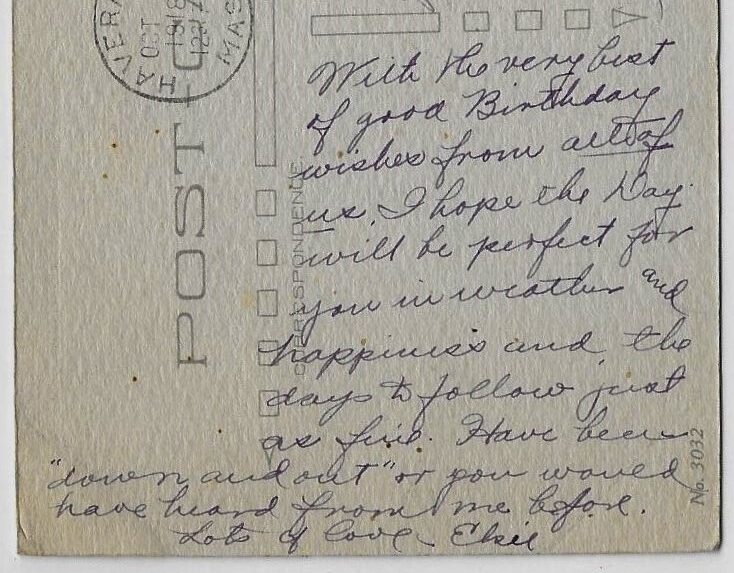 HAVERH
MASS
OCT
1918
POST
CORRESPONDENCE
With the very best
of good Birthday
wishes from all of
us. I hope the Day
will be perfect for
you in weather and
happiness and the
days to follow just
as fine. Have been
"down and out" or you would
have heard from me before.
Lots of love - Elsie
No. 3032